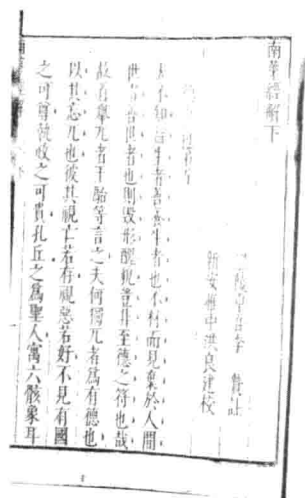 南華經解下
卓吾李 贄註
新安 中洪良建校
不知 生者善養生者也不材而見棄於人間
世者善世者也則毀形醜貌者非至德之符也哉
故首舉兀者王駘等言之夫何獨兀者為有德也
以其忘兀也彼其視亡若存視惡若好不見有國
之可尊執政之可貴孔丘之為聖人寓六骸象耳